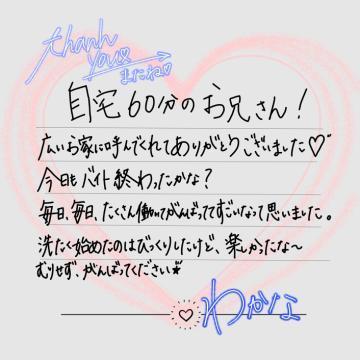 thank
you♡
またね♡
自宅60分のお兄さん！
広いお家に呼んでくれてありがとうございました♡
今日もバイト終わったかな？
毎日、毎日、たくさん働いてがんばっててすごいなって思いました。
洗たく始めたのはびっくりしたけど、楽しかったな〜
むりせず、がんばってください★
わかな